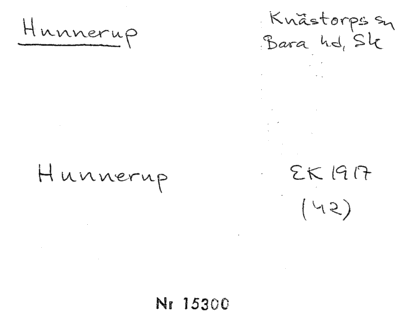 Hunnerup
Knästorps sn
Bara hd, Sk
Hunnerup
EK 1917
(42)
Nr 15300